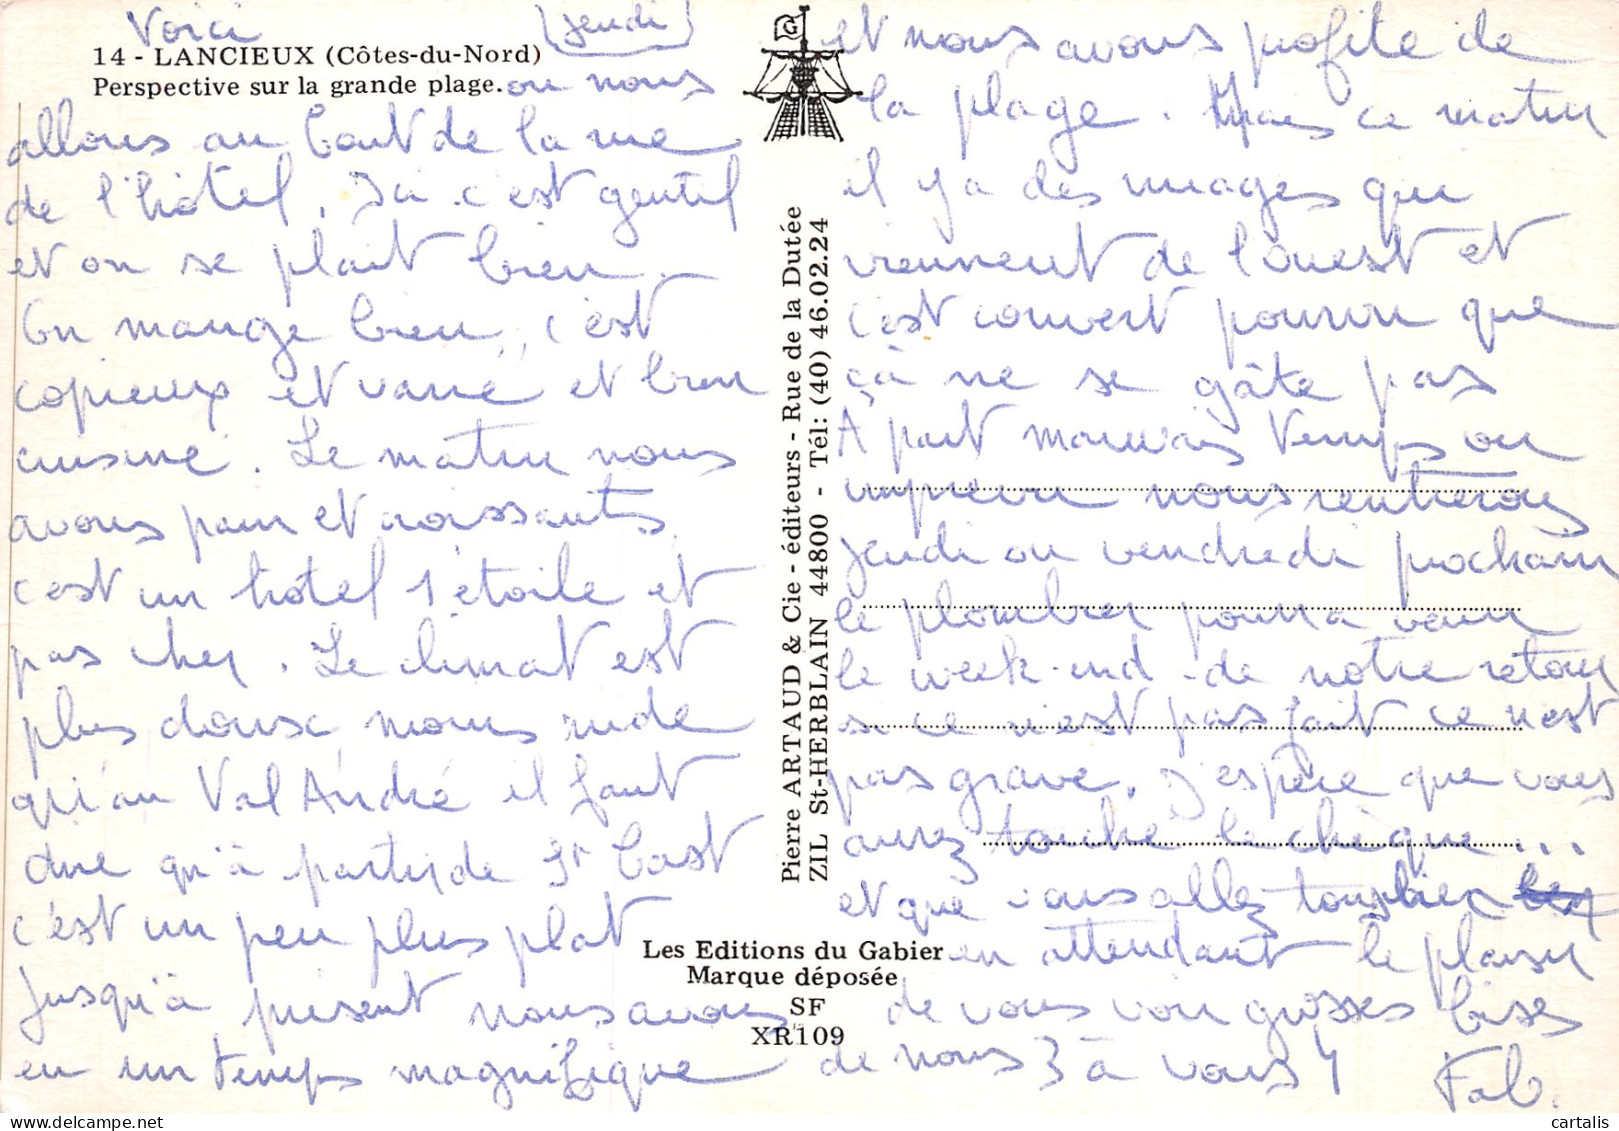 Voici (jeudi)
14 - LANCIEUX (Côtes-du-Nord)
Perspective sur la grande plage. où nous
allons au bout de la rue
de l'hôtel. Ici c'est gentil
et on se plait bien.
On mange bien, c'est
copieux et varié et bien
cuisiné. Le matin nous
avons pain et croissants
c'est un hôtel 1 étoile et
pas cher. Le climat est
plus doux moins rude
qu'au Val André il faut
dire qu'à partir de St Cast
c'est un peu plus plat
Jusqu'à présent nous avons
eu un temps magnifique
et nous avons profité de
la plage. Mais ce matin
il y a des nuages qui
viennent de l'ouest et
c'est couvert pourvu que
çà ne se gâte pas
A part mauvais temps ou
imprévu nous rentrerons
jeudi ou vendredi prochain
le plombier pourra venir
le week-end de notre retour
si ce n'est pas fait ce n'est
pas grave. J'espère que vous
avez touché le chèque...
et que vous allez tous bien
en attendant le plaisir
de vous voir grosses bises
de nous 3 à vous 4
Fab.
Pierre ARTAUD & Cie - éditeurs - Rue de la Dutée
ZIL St-HERBLAIN 44800 - Tél: (40) 46.02.24
G
Les Editions du Gabier
Marque déposée
SF
XR109
cartalis
delcampe.net